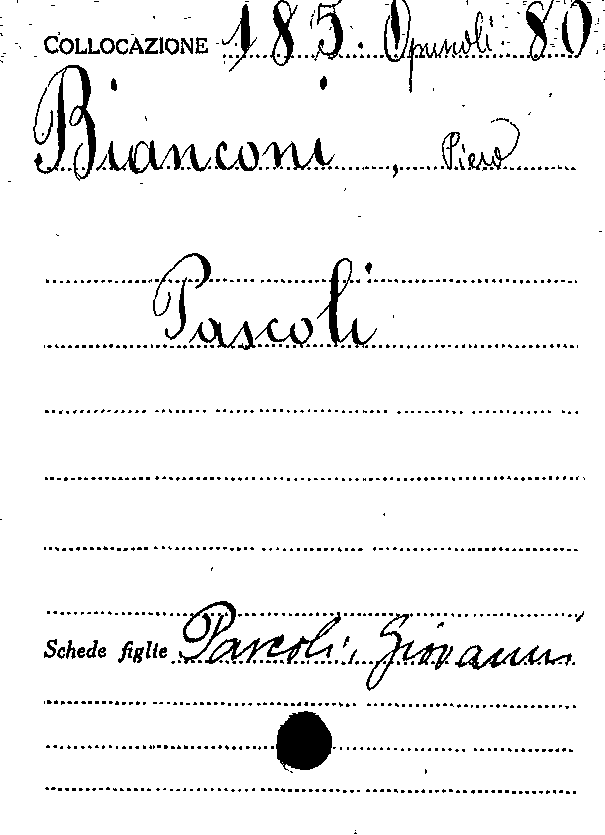 COLLOCAZIONE 185. Opuscoli. 80
Bianconi, Piero
Pascoli
Schede figlie Pascoli, Giovanni